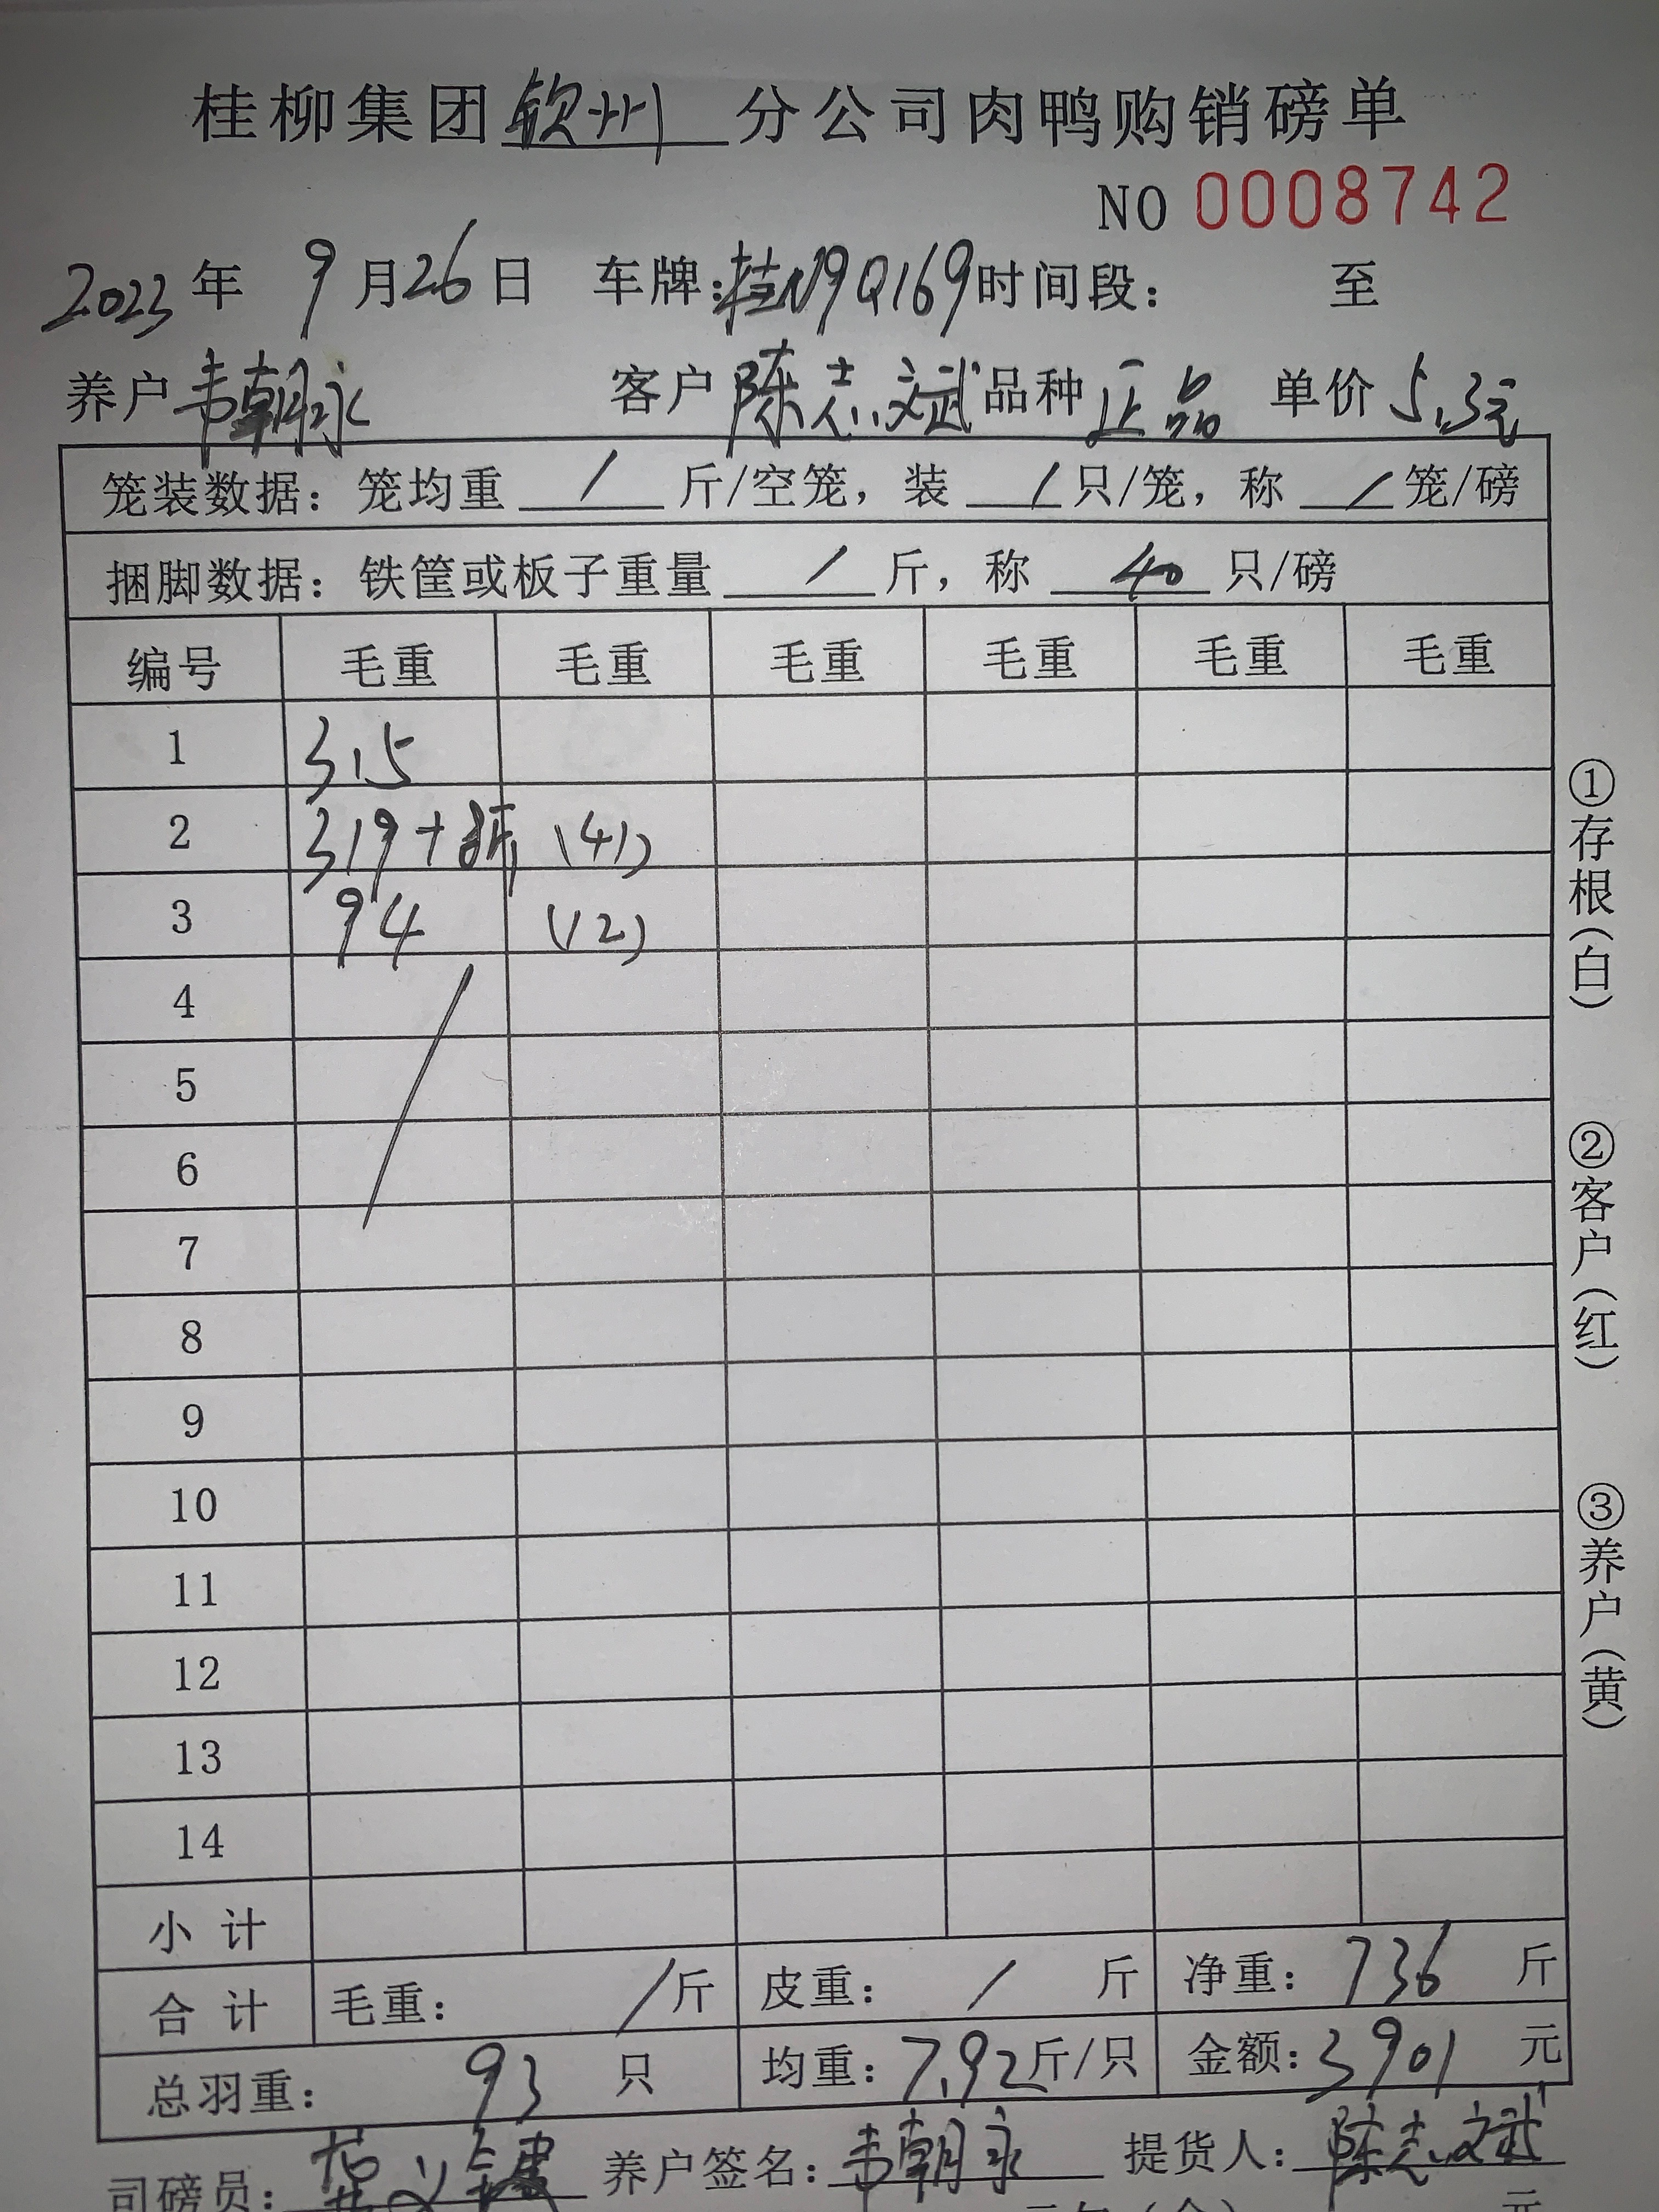 桂柳集团钦州分公司肉鸭购销磅单
NO 0008742
2023年 9月26日 车牌:桂N9Q169时间段: 至
养户韦朝永 客户陈志斌品种正品 单价5.3元
笼装数据：笼均重 / 斤/空笼，装 / 只/笼，称 / 笼/磅
捆脚数据：铁筐或板子重量 / 斤，称 40 只/磅
编号 毛重 毛重 毛重 毛重 毛重 毛重
1 315
2 319+ (41)
3 94 (12)
4
5
6
7
8
9
10
11
12
13
14
小计
合计 毛重： / 斤 皮重： / 斤 净重：736 斤
总羽重： 93 只 均重：7.92斤/只 金额：3901 元
司磅员： 养户签名：韦朝永 提货人：陈志斌
元
①存根（白）
②客户（红）
③养户（黄）